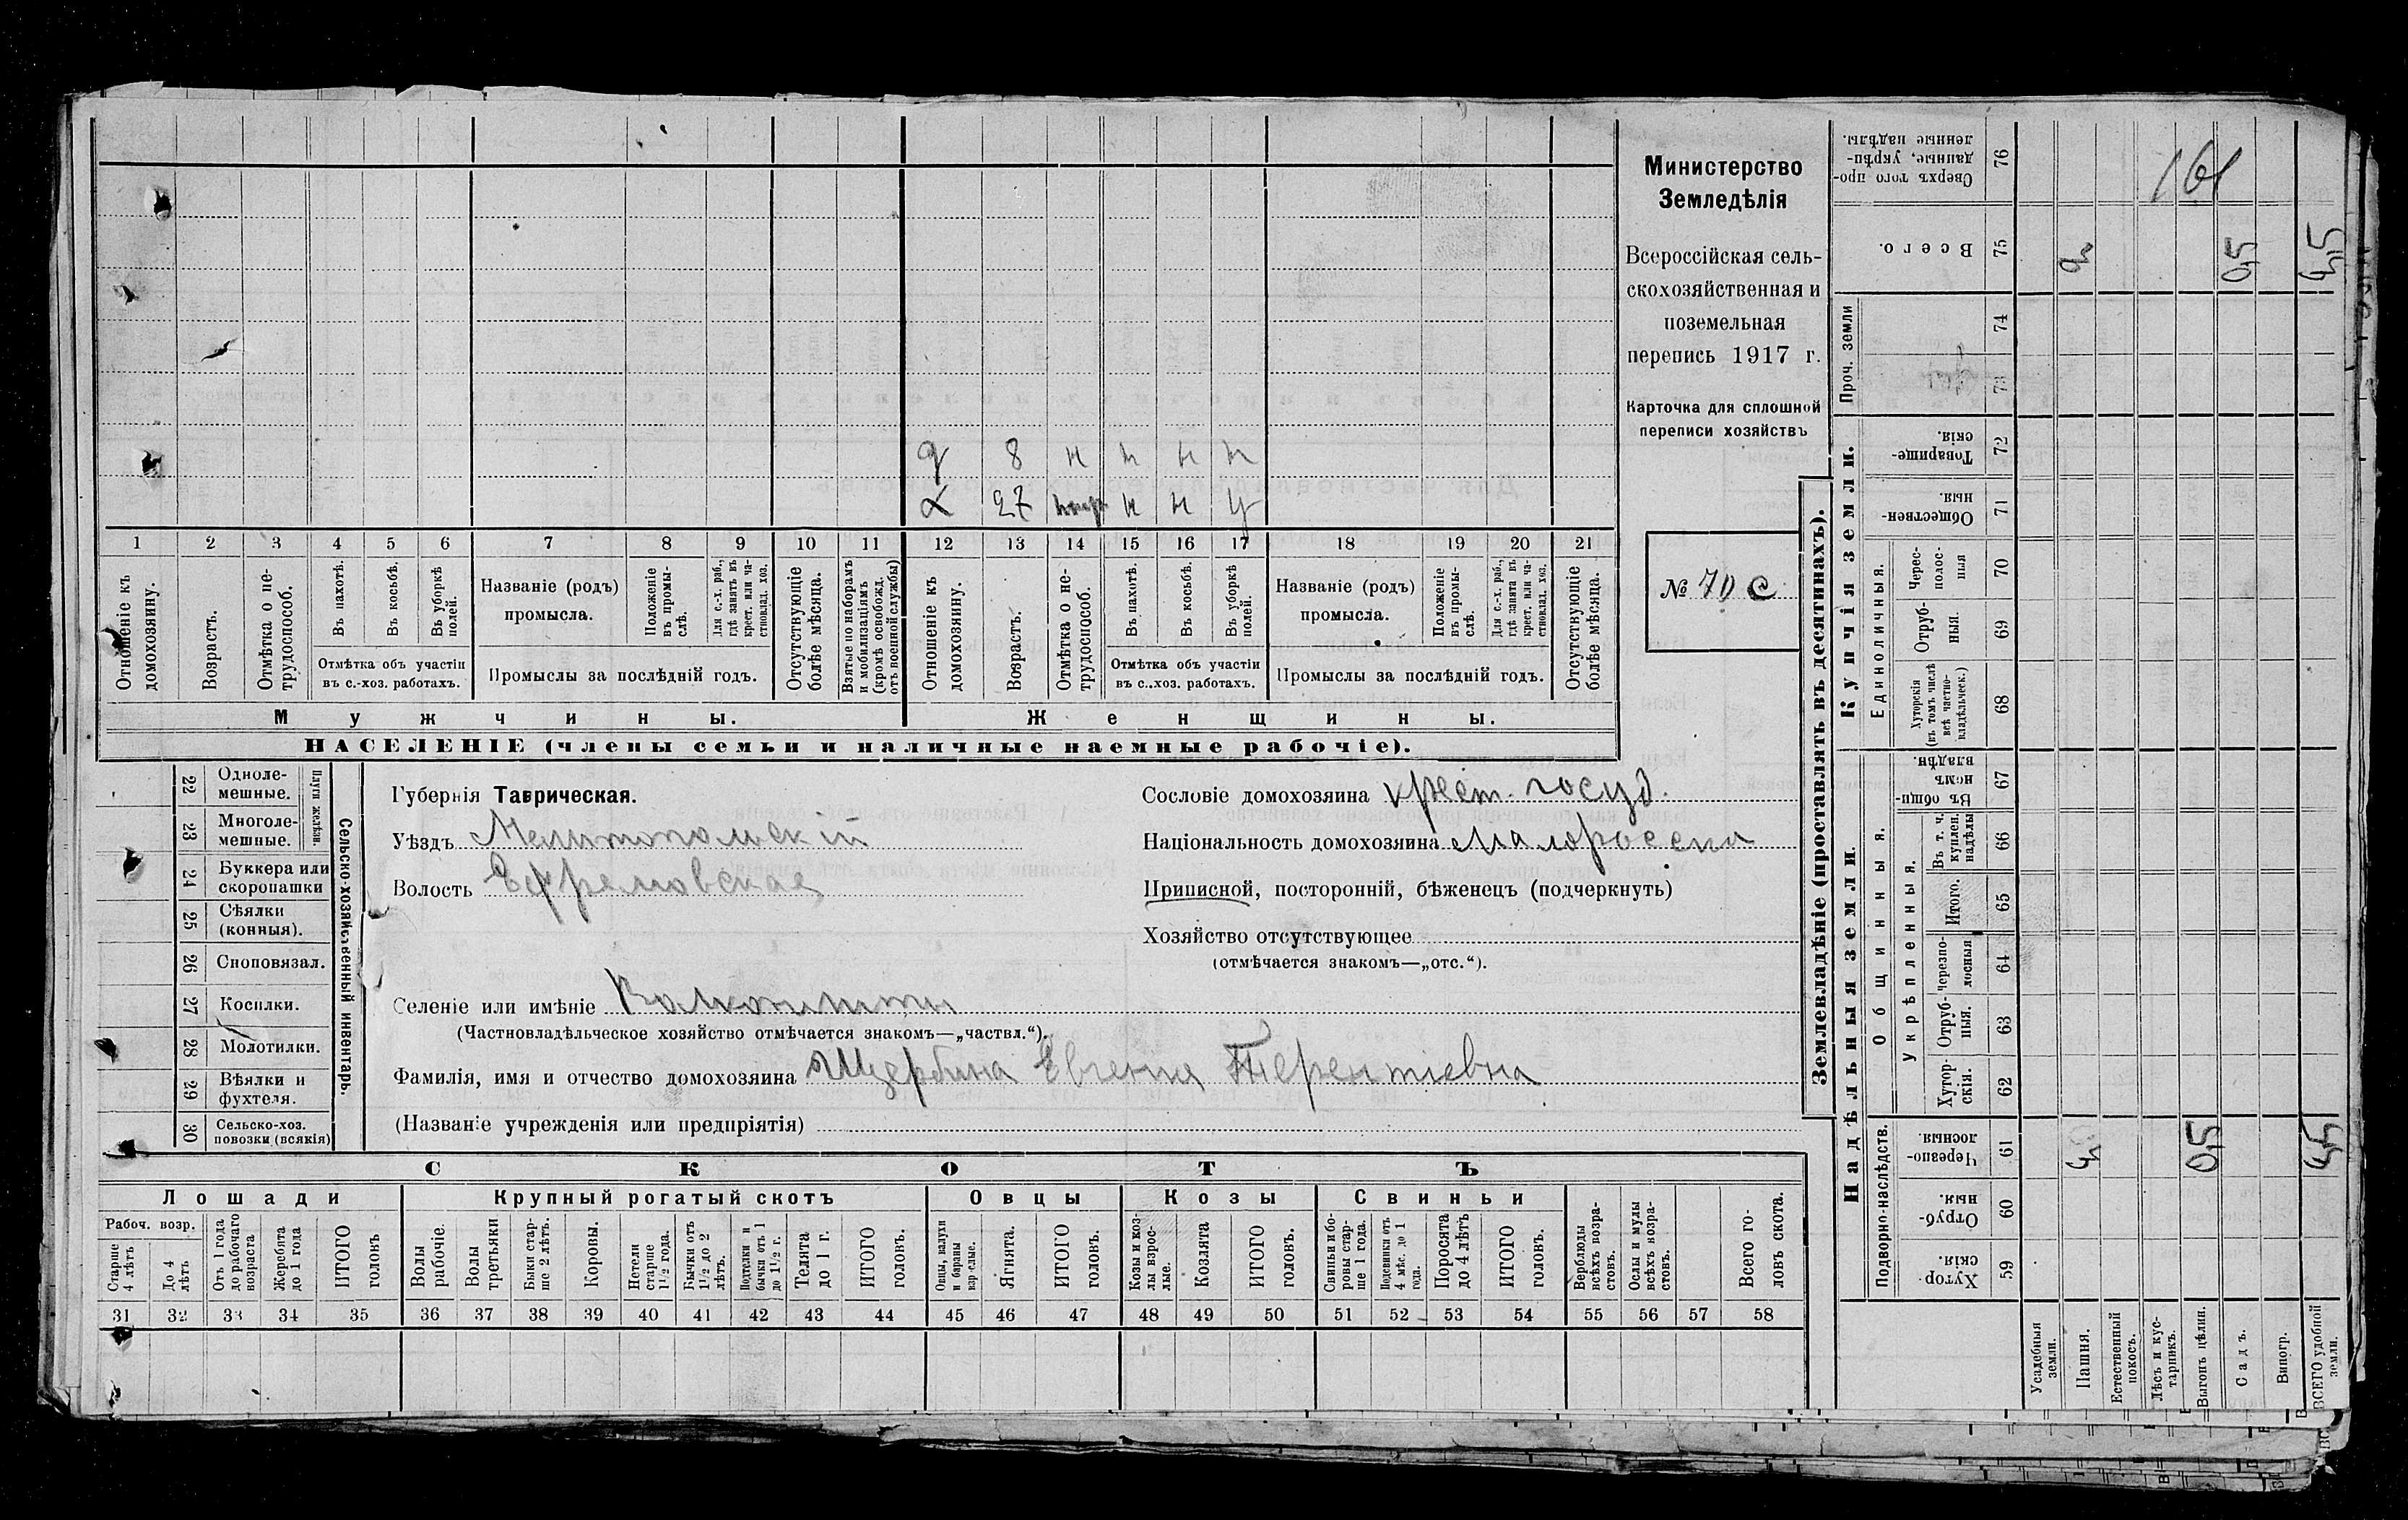 Министерство
Земледѣлія
Всероссійская сель-
скохозяйственная и
поземельная
перепись 1917 г.
Карточка для сплошной
переписи хозяйствъ
№ 70 с
161
д 8 н н н н
х 27 н н у
1 2 3 4 5 6 7 8 9 10 11 12 13 14 15 16 17 18 19 20 21
Отношеніе къ домохозяину.
Возрастъ.
Отмѣтка о не-трудоспособ.
Въ пахотѣ.
Въ косьбѣ.
Въ уборкѣ полей.
Отмѣтка объ участіи
въ с.-хоз. работахъ.
Названіе (родъ)
промысла.
Положеніе въ промы-слѣ.
Для с.-х. раб., гдѣ занятъ въ крест. или ча-стновлад. хоз.
Промыслы за послѣдній годъ.
Отсутствующіе болѣе мѣсяца.
Взятые по наборамъ и мобилизаціямъ (кромѣ освобожд. отъ военной службы)
Отношеніе къ домохозяину.
Возрастъ.
Отмѣтка о не-трудоспособ.
Въ пахотѣ.
Въ косьбѣ.
Въ уборкѣ полей.
Отмѣтка объ участіи
въ с.-хоз. работахъ.
Названіе (родъ)
промысла.
Положеніе въ промы-слѣ.
Для с.-х. раб., гдѣ занята въ крест. или ча-стновлад. хоз.
Промыслы за послѣдній годъ.
Отсутствующіе болѣе мѣсяца.
Мужчины.
Женщины.
НАСЕЛЕНІЕ (члены семьи и наличные наемные рабочіе).
22 Одноле-мешные.
23 Многоле-мешные.
Плуги желѣзн.
24 Буккера или скоропашки
25 Сѣялки (конныя).
26 Сноповязал.
27 Косилки.
28 Молотилки.
29 Вѣялки и фухтеля.
30 Сельско-хоз. повозки (всякія)
Сельско-хозяйственный инвентарь.
Губернія Таврическая.
Уѣздъ Мелитопольскій
Волость Ефремовская
Селеніе или имѣніе
(Частновладѣльческое хозяйство отмѣчается знакомъ—„частвл.“).
Фамилія, имя и отчество домохозяина Щербина Евгенія Терентіевна
(Названіе учрежденія или предпріятія)
Сословіе домохозяина крест. госуд.
Національность домохозяина Малороссъ
Приписной, посторонній, бѣженецъ (подчеркнуть)
Хозяйство отсутствующее
(отмѣчается знакомъ—„отс.“).
СКОТЪ
Лошади
Крупный рогатый скотъ
Овцы
Козы
Свиньи
Рабоч. возр.
Старше 4 лѣтъ
До 4 лѣтъ
Отъ 1 года до рабочаго возраста
Жеребята до 1 года
ИТОГО головъ
Волы рабочіе.
Волы третьяки
Быки стар-ше 2 лѣтъ.
Коровы.
Нетели старше 1½ года.
Бычки отъ 1½ до 2 лѣтъ.
Подтелки и бычки отъ 1 до 1½ г.
Телята до 1 г.
ИТОГО головъ.
Овцы, валухи и бараны взрослые.
Ягнята.
ИТОГО головъ.
Козы и коз-лы взрос-лые.
Козлята
ИТОГО головъ.
Свиньи и бо-ровы стар-ше 1 года.
Подсвинки отъ 4 мѣс. до 1 года.
Поросята до 4 лѣтъ
ИТОГО головъ.
Верблюды всѣхъ возра-стовъ.
Ослы и мулы всѣхъ возра-стовъ.
Всего го-ловъ скота.
31 32 33 34 35 36 37 38 39 40 41 42 43 44 45 46 47 48 49 50 51 52 53 54 55 56 57 58
Землевладѣніе (проставлять въ десятинахъ).
Надѣльныя земли.
Купчія земли.
Проч. земли
Подворно-наслѣдств.
Общинныя.
Укрѣпленныя.
Единоличныя.
Хутор-скія. 59
Отруб-ныя. 60
Черезпо-лосныя. 61
Хутор-скія. 62
Отруб-ныя. 63
Черезпо-лосныя 64
Итого. 65
Въ т. ч. куплен. надѣлы 66
Въ общи-номъ владѣн. 67
Хуторскія (въ томъ числѣ всѣ частно-владѣльческ.) 68
Отруб-ныя. 69
Черес-полос-ныя 70
Обществен-ныя 71
Товарище-скія. 72
73
74
Всего. 75
Сверхъ того про-данные, укрѣп-ленные надѣлы. 76
Усадебныя земли.
Пашня. 4 4
Естественный покосъ.
Лѣсъ и кус-тарникъ.
Выгонъ цѣлин. 0,5
Садъ. 0,5
Виногр.
ВСЕГО удобной земли. 4,5 4,5